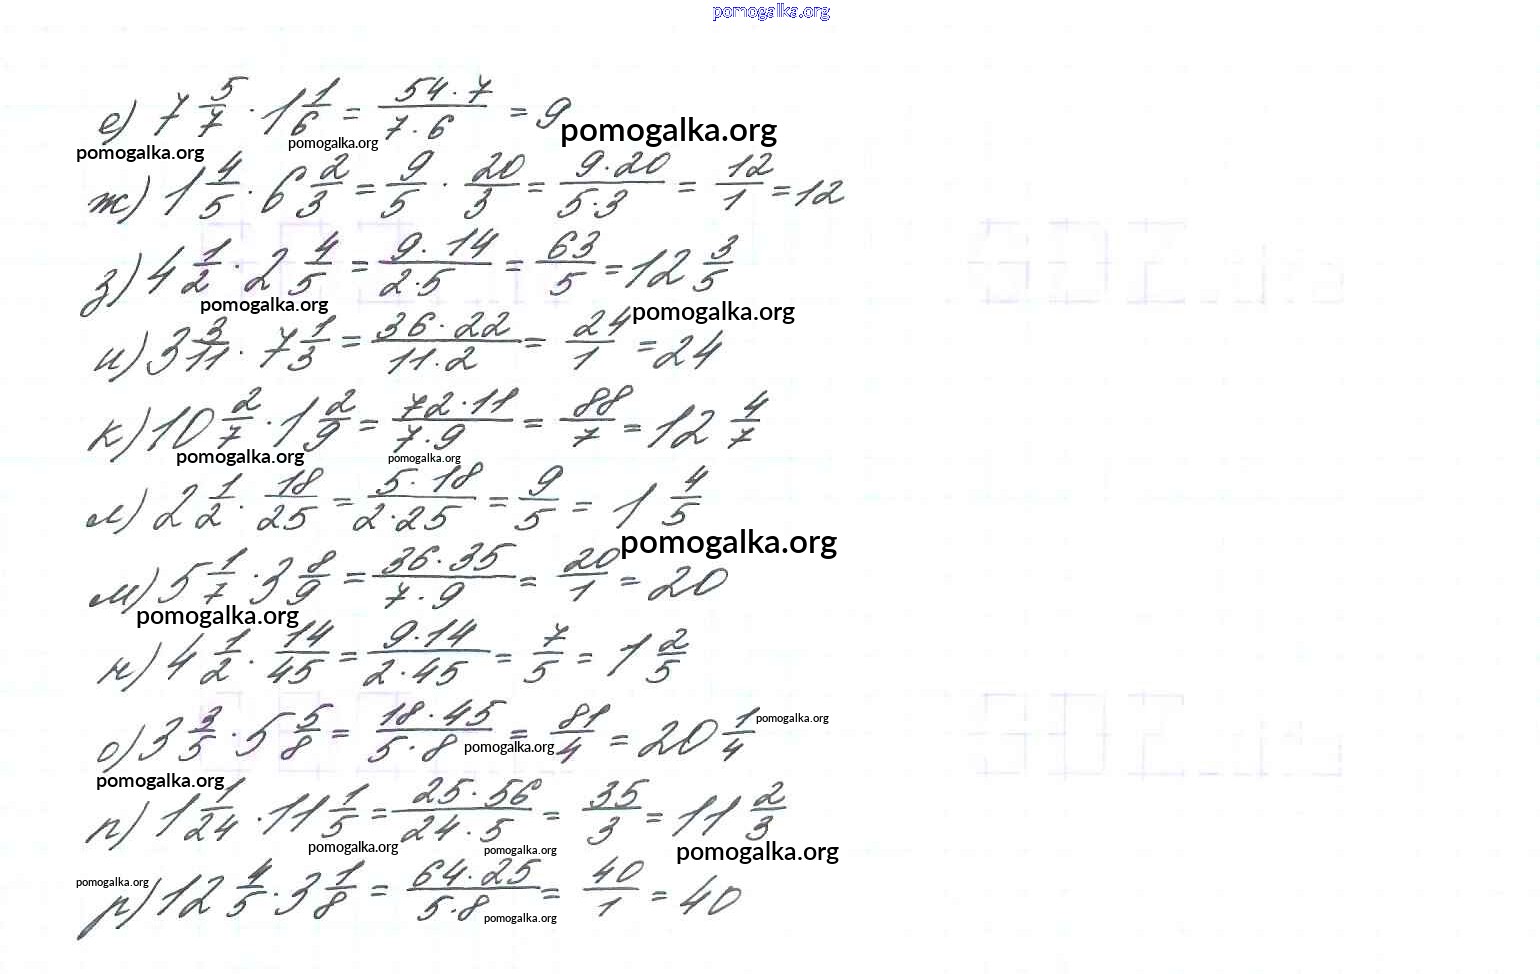 pomogalka.org
е) 7 5/7 · 1 1/6 = 54·7/7·6 = 9
pomogalka.org
pomogalka.org pomogalka.org
ж) 1 4/5 · 6 2/3 = 9/5 · 20/3 = 9·20/5·3 = 12/1 = 12
з) 4 1/2 · 2 4/5 = 9·14/2·5 = 63/5 = 12 3/5
pomogalka.org pomogalka.org
и) 3 3/11 · 7 1/3 = 36·22/11·2 = 24/1 = 24
к) 10 2/7 · 1 2/9 = 72·11/7·9 = 88/7 = 12 4/7
pomogalka.org pomogalka.org
л) 2 1/2 · 18/25 = 5·18/2·25 = 9/5 = 1 4/5
pomogalka.org
м) 5 1/7 · 3 8/9 = 36·35/7·9 = 20/1 = 20
pomogalka.org
н) 4 1/2 · 14/45 = 9·14/2·45 = 7/5 = 1 2/5
о) 3 3/5 · 5 5/8 = 18·45/5·8 = 81/4 = 20 1/4
pomogalka.org
pomogalka.org
pomogalka.org
п) 1 1/24 · 11 1/5 = 25·56/24·5 = 35/3 = 11 2/3
pomogalka.org pomogalka.org pomogalka.org
р) 12 4/5 · 3 1/8 = 64·25/5·8 = 40/1 = 40
pomogalka.org
pomogalka.org